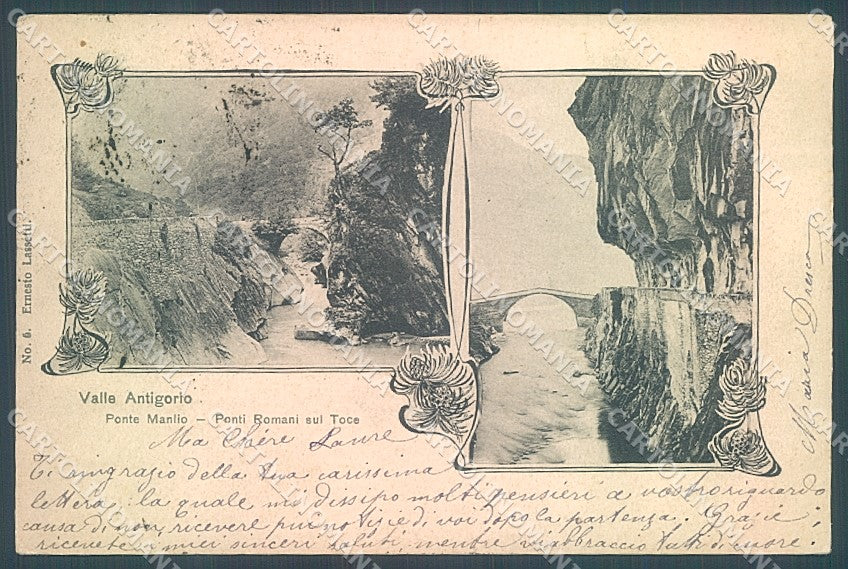 No. 6. Ernesto Lassetti.
Valle Antigorio
Ponte Manlio – Ponti Romani sul Toce
Ma Chère Laure
Ti ringrazio della tua carissima
lettera, la quale mi dissipò molti pensieri a vostro riguardo
causa di non ricevere più notizie di voi dopo la partenza. Grazie,
ricevete i miei sinceri saluti, mentre vi abbraccio tutti di cuore.
Maria Dresco
CARTOLINOMANIA